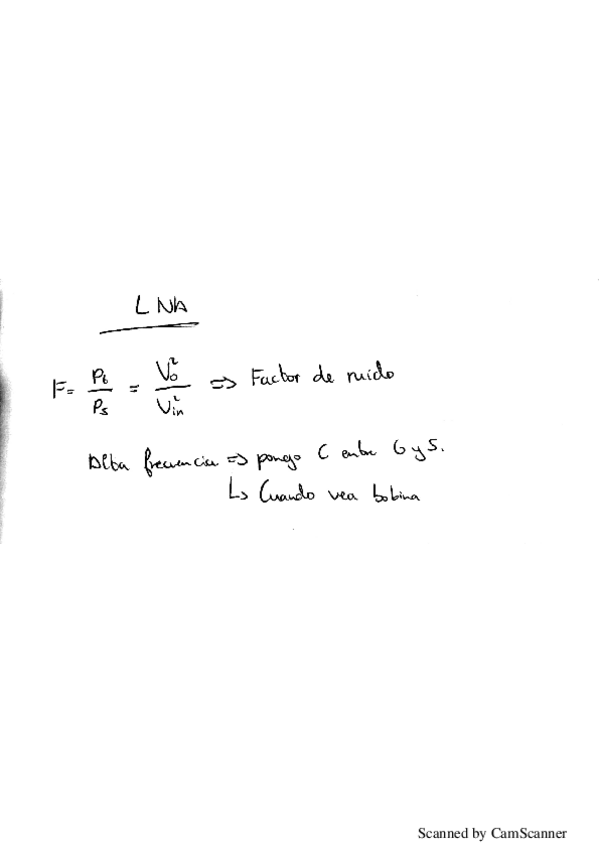 LNA
F = Pt/Ps = Vo²/Vin² => Factor de ruido
Alta frecuencia => pongo C entre G y S.
↳ Cuando vea bobina
Scanned by CamScanner